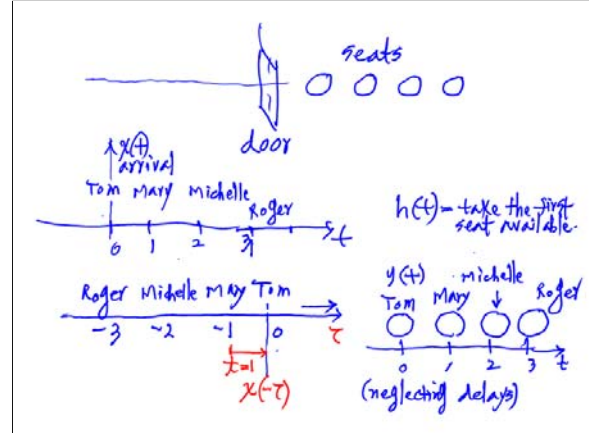 seats
door
x(t)
arrival
Tom Mary Michelle
Roger
0 1 2 3 t
h(t) = take the first
seat available.
Roger Michelle Mary Tom
-3 -2 -1 0 τ
t=1
x(-τ)
y(t) Michelle
Tom Mary Roger
0 1 2 3 t
(neglecting delays)